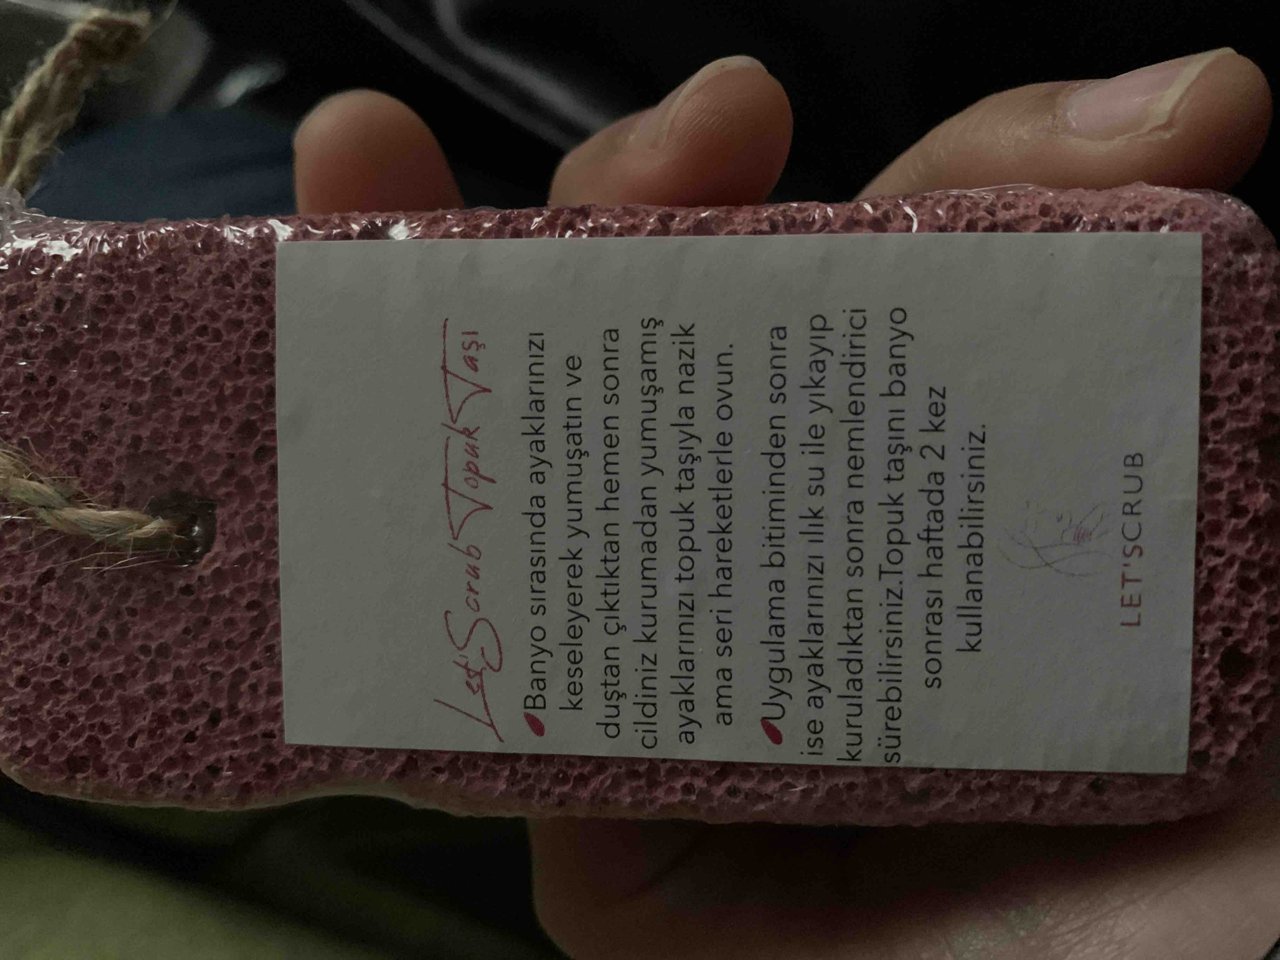 Let's Scrub Topuk Taşı
Banyo sırasında ayaklarınızı
keseleyerek yumuşatın ve
duştan çıktıktan hemen sonra
cildiniz kurumadan yumuşamış
ayaklarınızı topuk taşıyla nazik
ama seri hareketlerle ovun.
Uygulama bitiminden sonra
ise ayaklarınızı ılık su ile yıkayıp
kuruladıktan sonra nemlendirici
sürebilirsiniz.Topuk taşını banyo
sonrası haftada 2 kez
kullanabilirsiniz.
LET'SCRUB